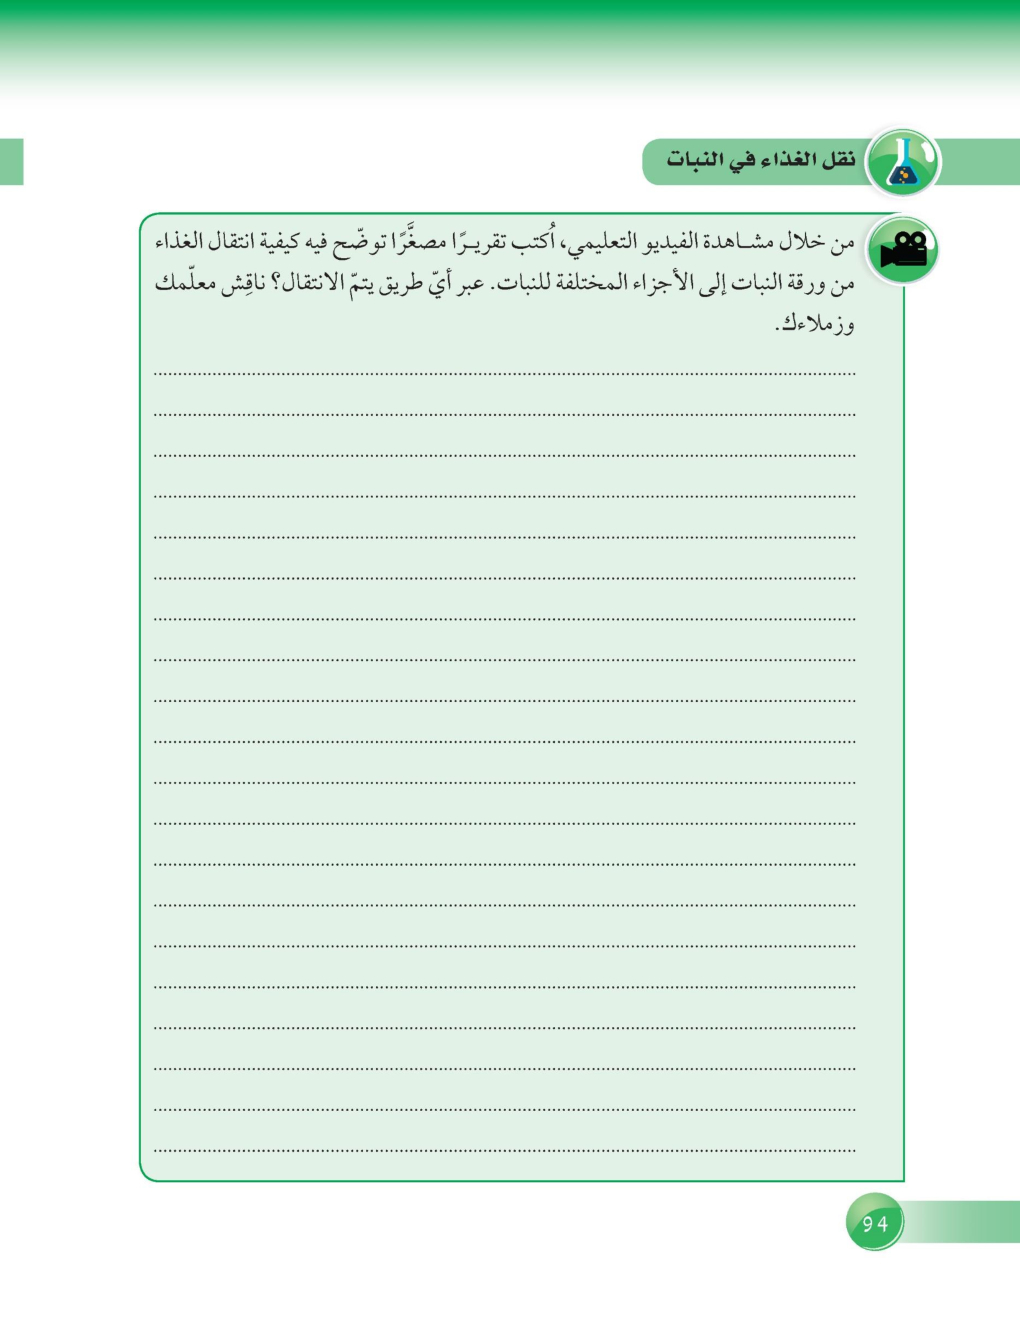 نقل الغذاء في النبات
من خلال مشاهدة الفيديو التعليمي، أُكتب تقريرًا مصغَّرًا توضّح فيه كيفية انتقال الغذاء
من ورقة النبات إلى الأجزاء المختلفة للنبات. عبر أيّ طريق يتمّ الانتقال؟ ناقِش معلّمك
وزملاءك.
94